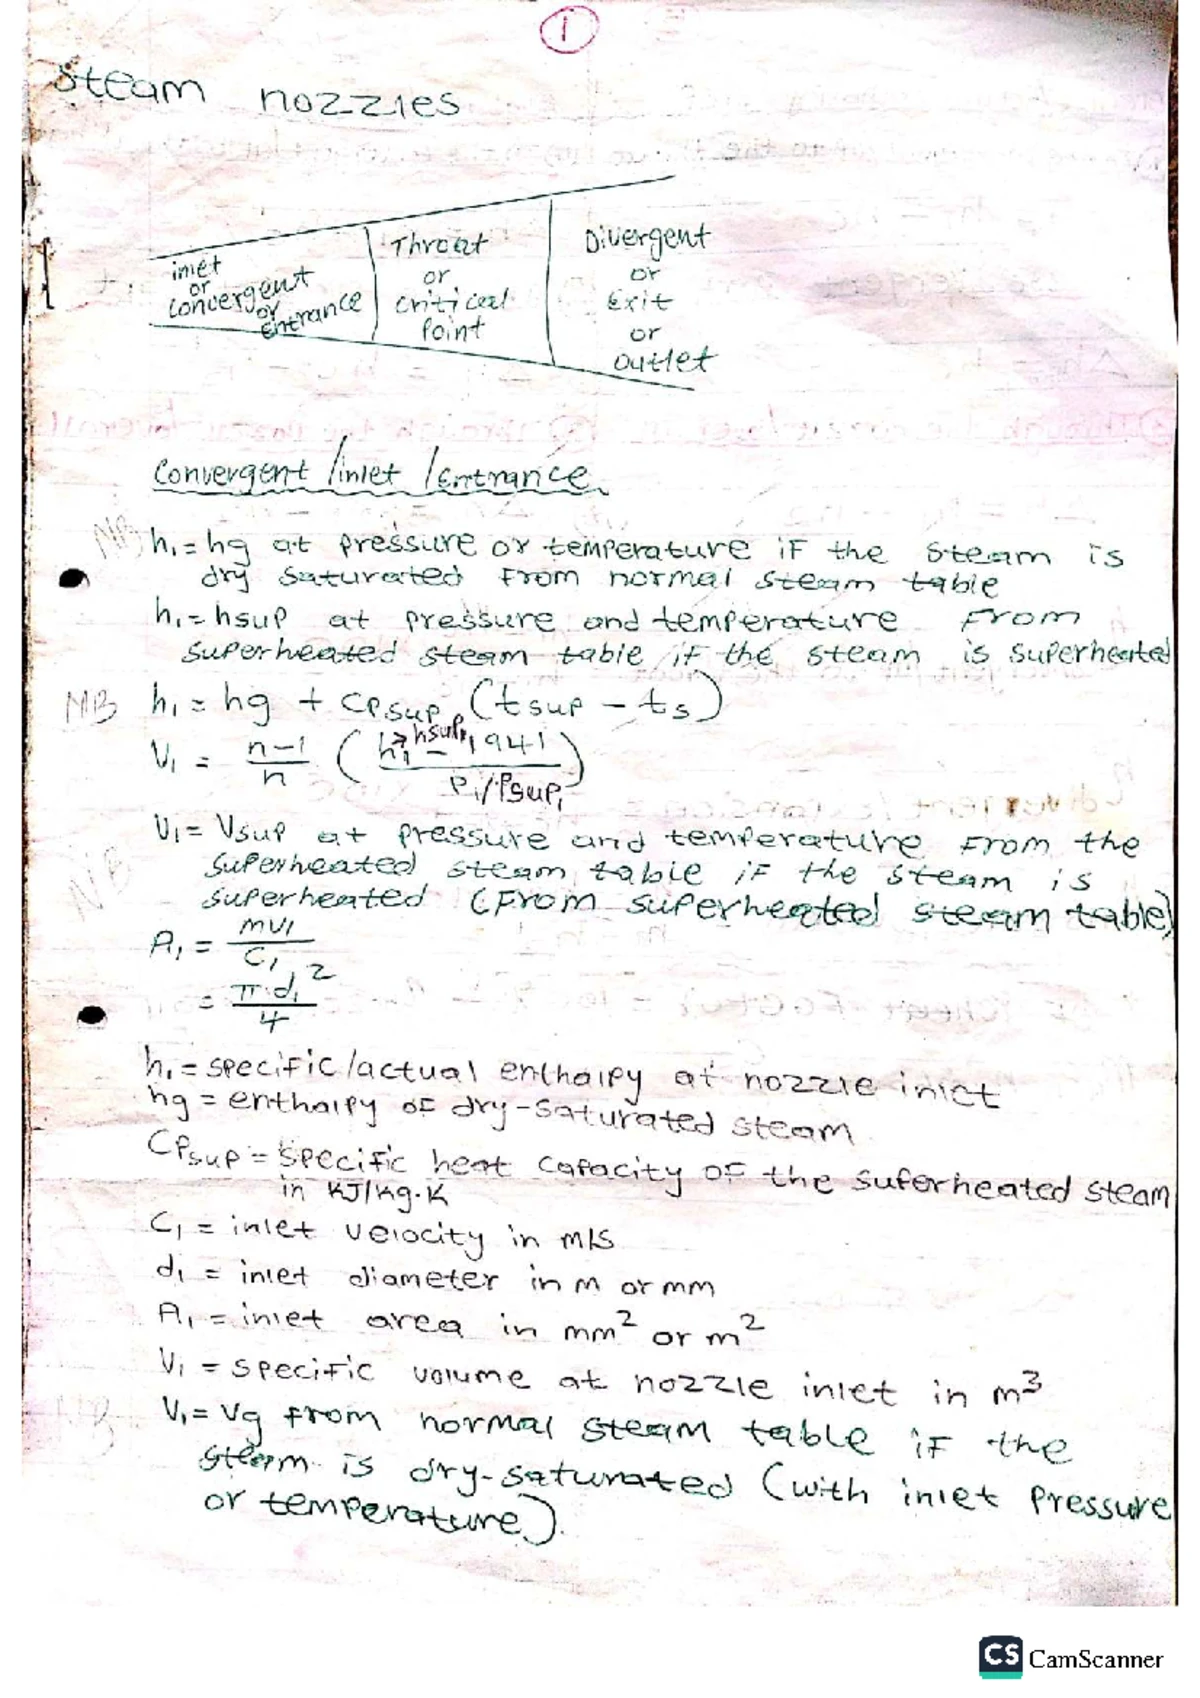 1
steam nozzles
inlet
or
convergent
or
entrance
Throat
or
critical
point
Divergent
or
Exit
or
outlet
Convergent /inlet /Entrance
NB h₁=hg at pressure or temperature if the steam is
dry saturated from normal steam table
h₁=hsup at pressure and temperature from
superheated steam table if the steam is superheated
NB h₁ = hg + CPsup (tsup - ts)
V₁ = n-1/n (h₁→hsup₁ - 1941 / P₁/Psup₁)
V₁= Vsup at pressure and temperature from the
NB superheated steam table if the steam is
superheated (From superheated steam table)
A₁ = mv₁/C₁
= πd₁²/4
h₁=specific/actual enthalpy at nozzle inlet
hg = enthalpy of dry-saturated steam
CPsup = specific heat capacity of the superheated steam
in KJ/kg.K
C₁ = inlet velocity in m/s
d₁ = inlet diameter in m or mm
A₁ = inlet area in mm² or m²
V₁ = specific volume at nozzle inlet in m³
V₁= Vg from normal steam table if the
steam is dry-saturated (with inlet pressure
or temperature).
CS CamScanner